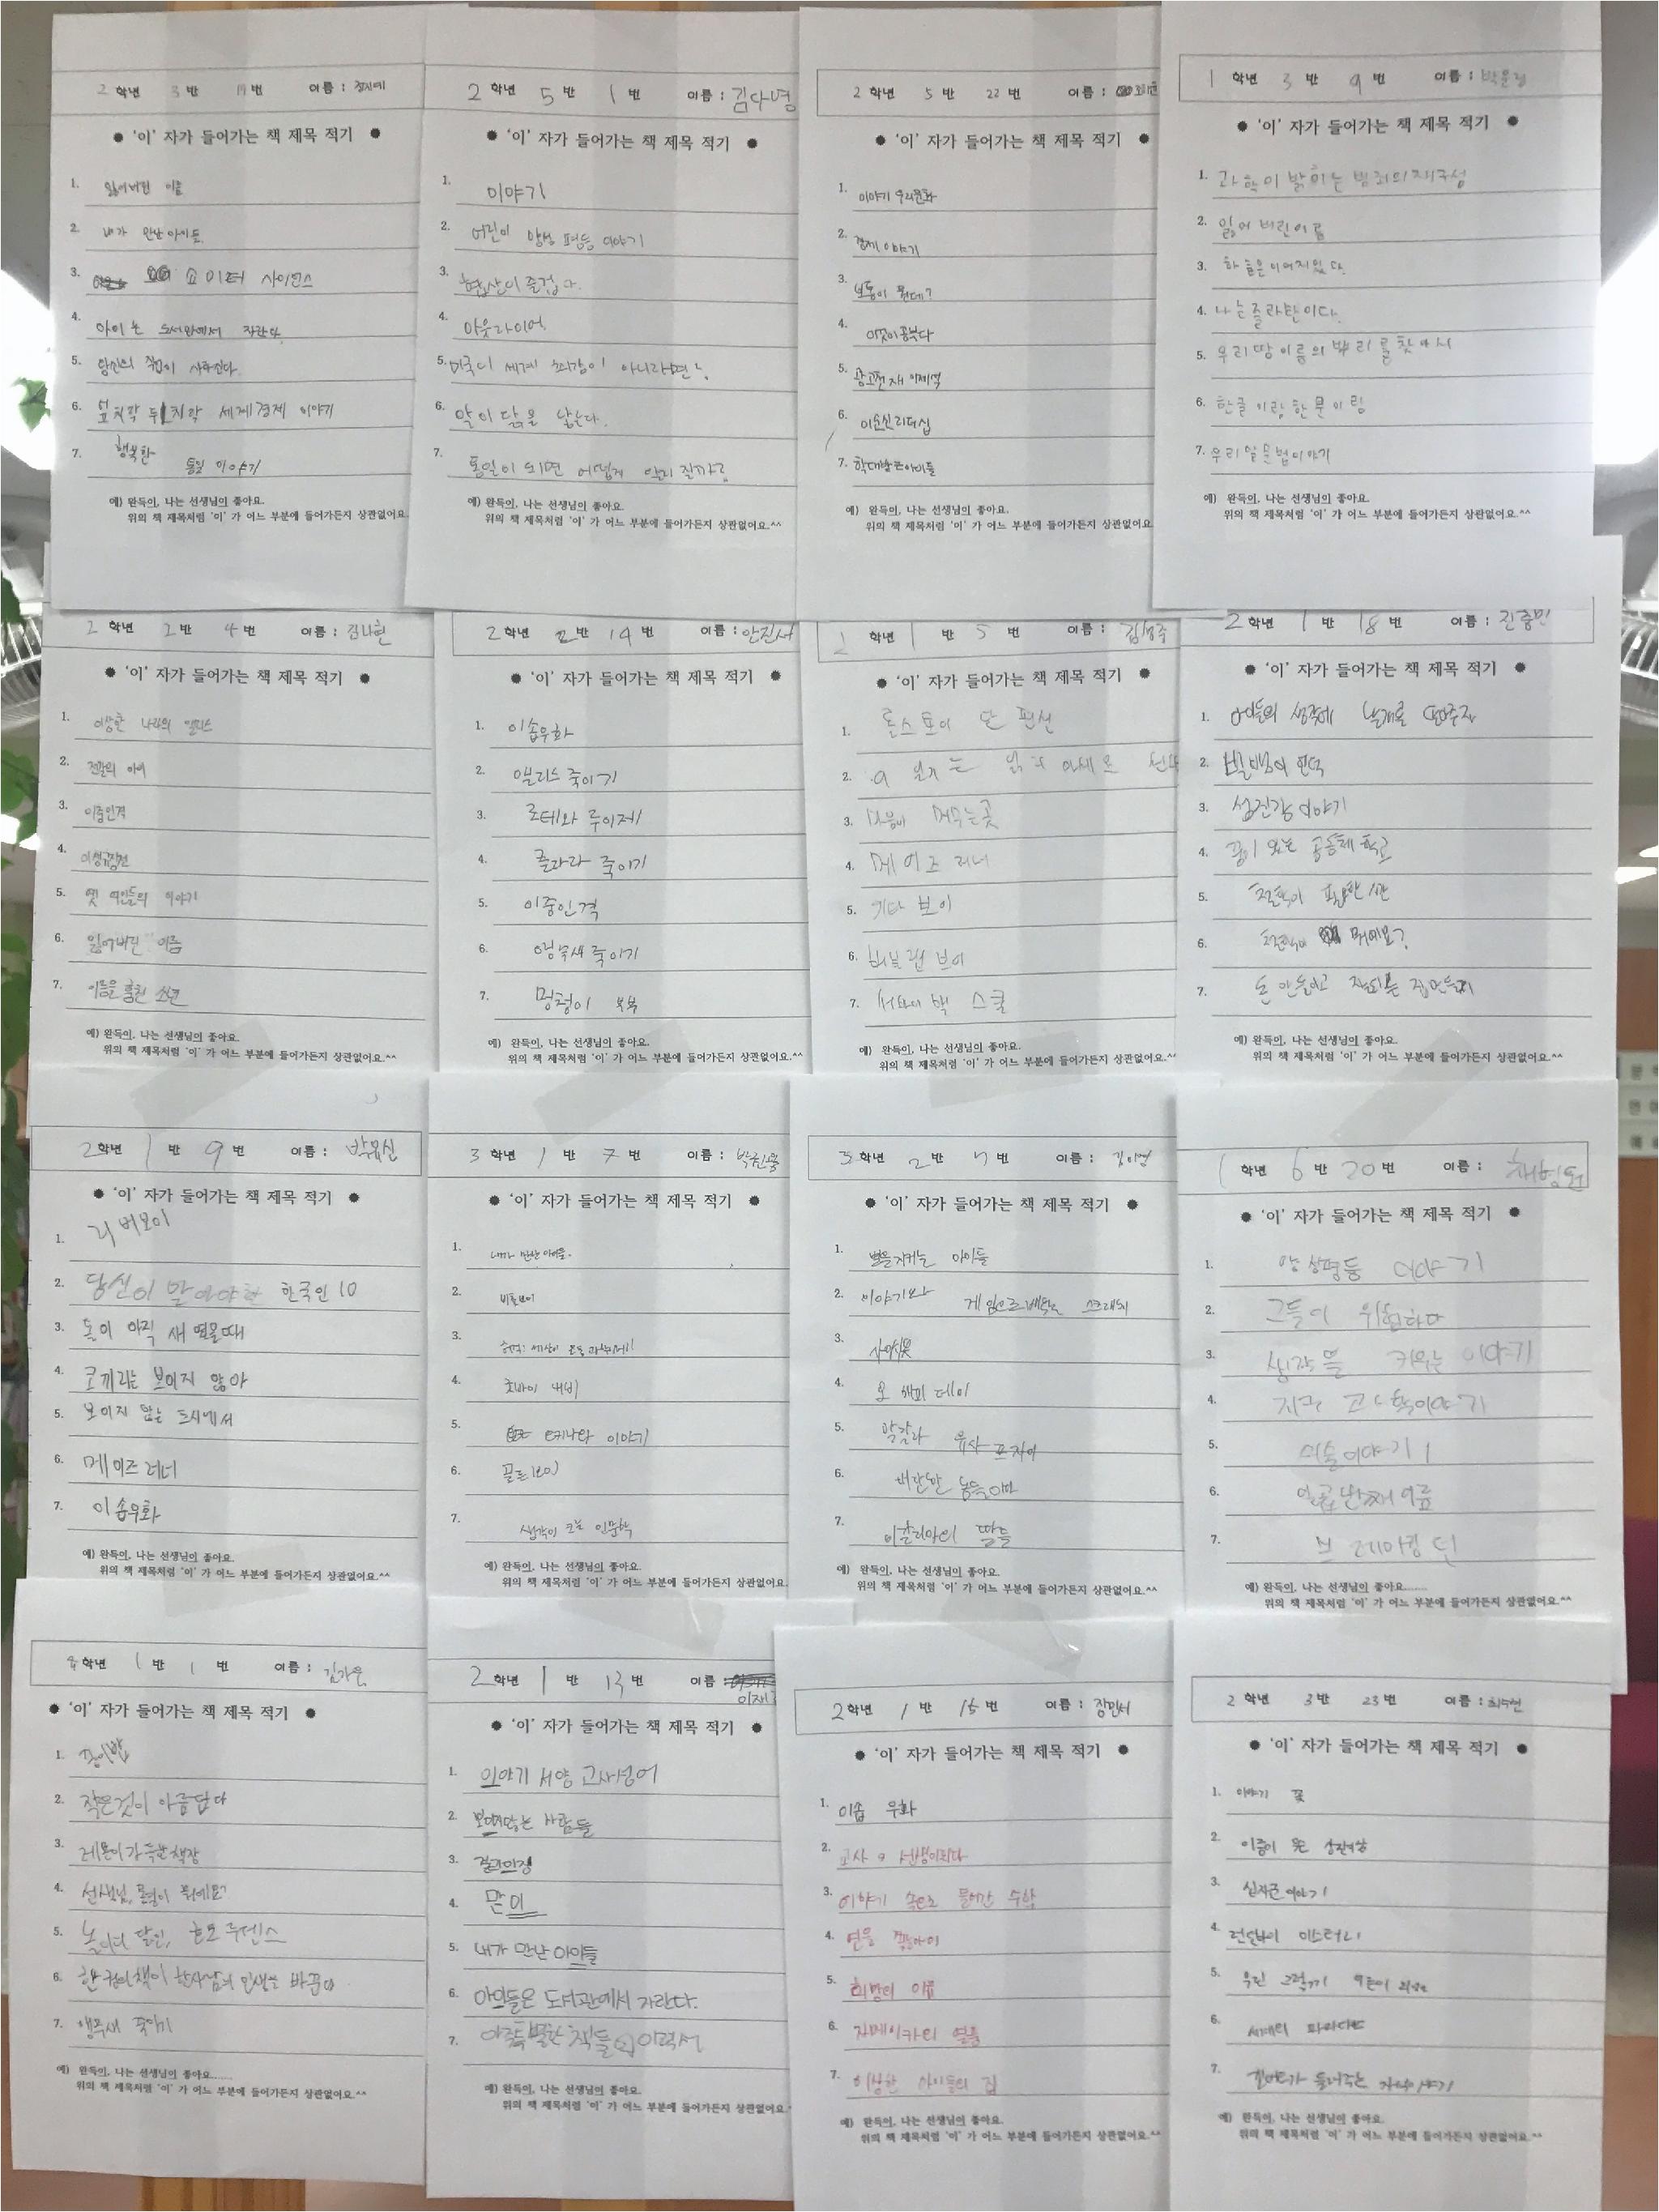 2 학년 3 반 19 번 이름 :
● '이' 자가 들어가는 책 제목 적기 ●
1. 잃어버린 이름
2. 내가 만난 아이들
3. 쇼미더 사이언스
4. 아이는 도서관에서 자란다.
5. 당신의 직업이 사라진다.
6. 앞치락 뒤치락 세계경제 이야기
7. 행복한 통일 이야기
예) 완득이, 나는 선생님의 좋아요.
위의 책 제목처럼 '이' 가 어느 부분에 들어가든지 상관없어요.
2 학년 5 반 1 번 이름 : 김다영
● '이' 자가 들어가는 책 제목 적기 ●
1. 이야기
2. 어린이 양성 평등 이야기
3. 협상이 즐겁다.
4. 아웃라이어.
5. 미국이 세계 최강이 아니라면?
6. 말이 닭을 낳는다.
7. 통일이 되면 어떻게 달라 질까?
예) 완득이, 나는 선생님의 좋아요.
위의 책 제목처럼 '이' 가 어느 부분에 들어가든지 상관없어요.
2 학년 5 반 22 번 이름 :
● '이' 자가 들어가는 책 제목 적기 ●
1. 이야기 우리문화
2. 경제 이야기
3. 보통이 뭔데?
4. 이것이 공부다
5. 광고천재 이제석
6. 이순신리더십
7. 학대받는아이들
예) 완득이, 나는 선생님의 좋아요.
위의 책 제목처럼 '이' 가 어느 부분에 들어가든지 상관없어요.
1 학년 3 반 9 번 이름 :
● '이' 자가 들어가는 책 제목 적기 ●
1. 과학이 밝히는 범죄의재구성
2. 잃어 버린이름
3. 하늘은이어져있다.
4. 나는즐라탄이다.
5. 우리땅이름의 뿌리를찾아서
6. 한글 이랑 한문이랑
7. 우리말문법이야기
예) 완득이, 나는 선생님의 좋아요.
위의 책 제목처럼 '이' 가 어느 부분에 들어가든지 상관없어요.^^
2 학년 2 반 4 번 이름 : 김나현
● '이' 자가 들어가는 책 제목 적기 ●
1. 이상한 나라의 앨리스
2. 전갈의 아이
3. 이중인격
4. 이생규장전
5. 옛 여인들의 이야기
6. 잃어버린 이름
7. 이름을 훔친 소년
예) 완득이, 나는 선생님의 좋아요.
위의 책 제목처럼 '이' 가 어느 부분에 들어가든지 상관없어요.^^
2 학년 2 반 14 번 이름 : 안진서
● '이' 자가 들어가는 책 제목 적기 ●
1. 이솝우화
2. 앨리스 죽이기
3. 로테와 루이제
4. 졸라라 죽이기
5. 이중인격
6. 앵무새 죽이기
7. 멍청이 부부
예) 완득이, 나는 선생님의 좋아요.
위의 책 제목처럼 '이' 가 어느 부분에 들어가든지 상관없어요.^^
학년 1 반 5 번 이름 :
● '이' 자가 들어가는 책 제목 적기 ●
1. 톨스토이 단편선
2. 이 일기는 읽지 마세요
3. 마음이 머무는곳
4. 메이즈 러너
5. 기타 보이
6. 보이
7. 써바이벌 스쿨
예) 완득이, 나는 선생님의 좋아요.
위의 책 제목처럼 '이' 가 어느 부분에 들어가든지 상관없어요.^^
2 학년 1 반 18 번 이름 : 진중민
● '이' 자가 들어가는 책 제목 적기 ●
1. 아이들의 생각에 날개를 달아주자
2. 언덕
3. 섬진강 이야기
4. 꿈이 있는 공동체 학교
5. 철학이 필요한 시간
6. 철학이 뭐예요?
7.
예) 완득이, 나는 선생님의 좋아요.
위의 책 제목처럼 '이' 가 어느 부분에 들어가든지 상관없어요.^^
2 학년 1 반 9 번 이름 :
● '이' 자가 들어가는 책 제목 적기 ●
1. 리버보이
2. 당신이 알아야할 한국인 10
3. 돌이 아직 새 였을때
4. 코끼리는 보이지 않아
5. 보이지 않는 도시에서
6. 메이즈 러너
7. 이솝우화
예) 완득이, 나는 선생님의 좋아요.
위의 책 제목처럼 '이' 가 어느 부분에 들어가든지 상관없어요.^^
3 학년 1 반 7 번 이름 :
● '이' 자가 들어가는 책 제목 적기 ●
1. 내가 만난 아이들.
2.
3.
4.
5. 이야기
6. 골든보이
7. 생각이 크는 인문학
예) 완득이, 나는 선생님의 좋아요.
위의 책 제목처럼 '이' 가 어느 부분에 들어가든지 상관없어요.
3 학년 2 반 번 이름 :
● '이' 자가 들어가는 책 제목 적기 ●
1. 별을지키는 아이들
2. 이야기와 게임으로배우는 스크래치
3. 사이시옷
4. 오 해피 데이
5. 알칼라
6.
7. 이갈리아의 딸들
예) 완득이, 나는 선생님의 좋아요.
위의 책 제목처럼 '이' 가 어느 부분에 들어가든지 상관없어요.^^
1 학년 6 반 20 번 이름 : 채형원
● '이' 자가 들어가는 책 제목 적기 ●
1. 양성평등 이야기
2. 그들이 위험하다
3. 심장을 키우는 이야기
4. 지구 고고학이야기
5. 미술이야기 1
6. 일곱번째 여름
7. 브레이킹 던
예) 완득이, 나는 선생님의 좋아요.......
위의 책 제목처럼 '이' 가 어느 부분에 들어가든지 상관없어요.^^
학년 1 반 1 번 이름 : 김가은
● '이' 자가 들어가는 책 제목 적기 ●
1. 종이밥
2. 작은것이 아름답다
3. 레몬이가득한책장
4. 선생님, 폭력이 뭐예요?
5. 놀이의 달인, 호모 루덴스
6. 한 권의책이 한사람의 인생을 바꾼다.
7. 앵무새 죽이기
예) 완득이, 나는 선생님의 좋아요.......
위의 책 제목처럼 '이' 가 어느 부분에 들어가든지 상관없어요.^^
2 학년 1 반 13 번 이름
● '이' 자가 들어가는 책 제목 적기 ●
1. 이야기 서양 고사성어
2. 보이지않는 사람들
3.
4. 맏이
5. 내가 만난 아이들
6. 아이들은 도서관에서 자란다.
7. 아주특별한 책들의이력서
예) 완득이, 나는 선생님의 좋아요.
위의 책 제목처럼 '이' 가 어느 부분에 들어가든지 상관없어요.
2 학년 1 반 15 번 이름 : 장민서
● '이' 자가 들어가는 책 제목 적기 ●
1. 이솝 우화
2. 교사 선생이되다
3. 이야기 속으로 들어간 수학
4. 얼음
5. 희망의 이름
6. 자메이카의 열풍
7. 이상한 아이들의 집
예) 완득이, 나는 선생님의 좋아요.
위의 책 제목처럼 '이' 가 어느 부분에 들어가든지 상관없어요.^^
2 학년 3 반 23 번 이름 : 최수연
● '이' 자가 들어가는 책 제목 적기 ●
1. 이야기 꽃
2.
3. 십자군 이야기
4. 런던아이 미스터리
5.
6. 세계의
7. 들려주는
예) 완득이, 나는 선생님의 좋아요.
위의 책 제목처럼 '이' 가 어느 부분에 들어가든지 상관없어요.^^